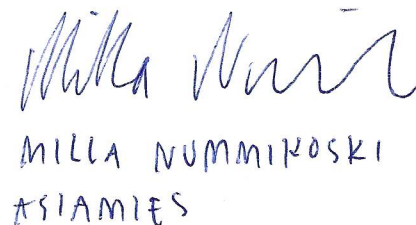 Milla
MILLA NUMMIKOSKI
ASIAMIES